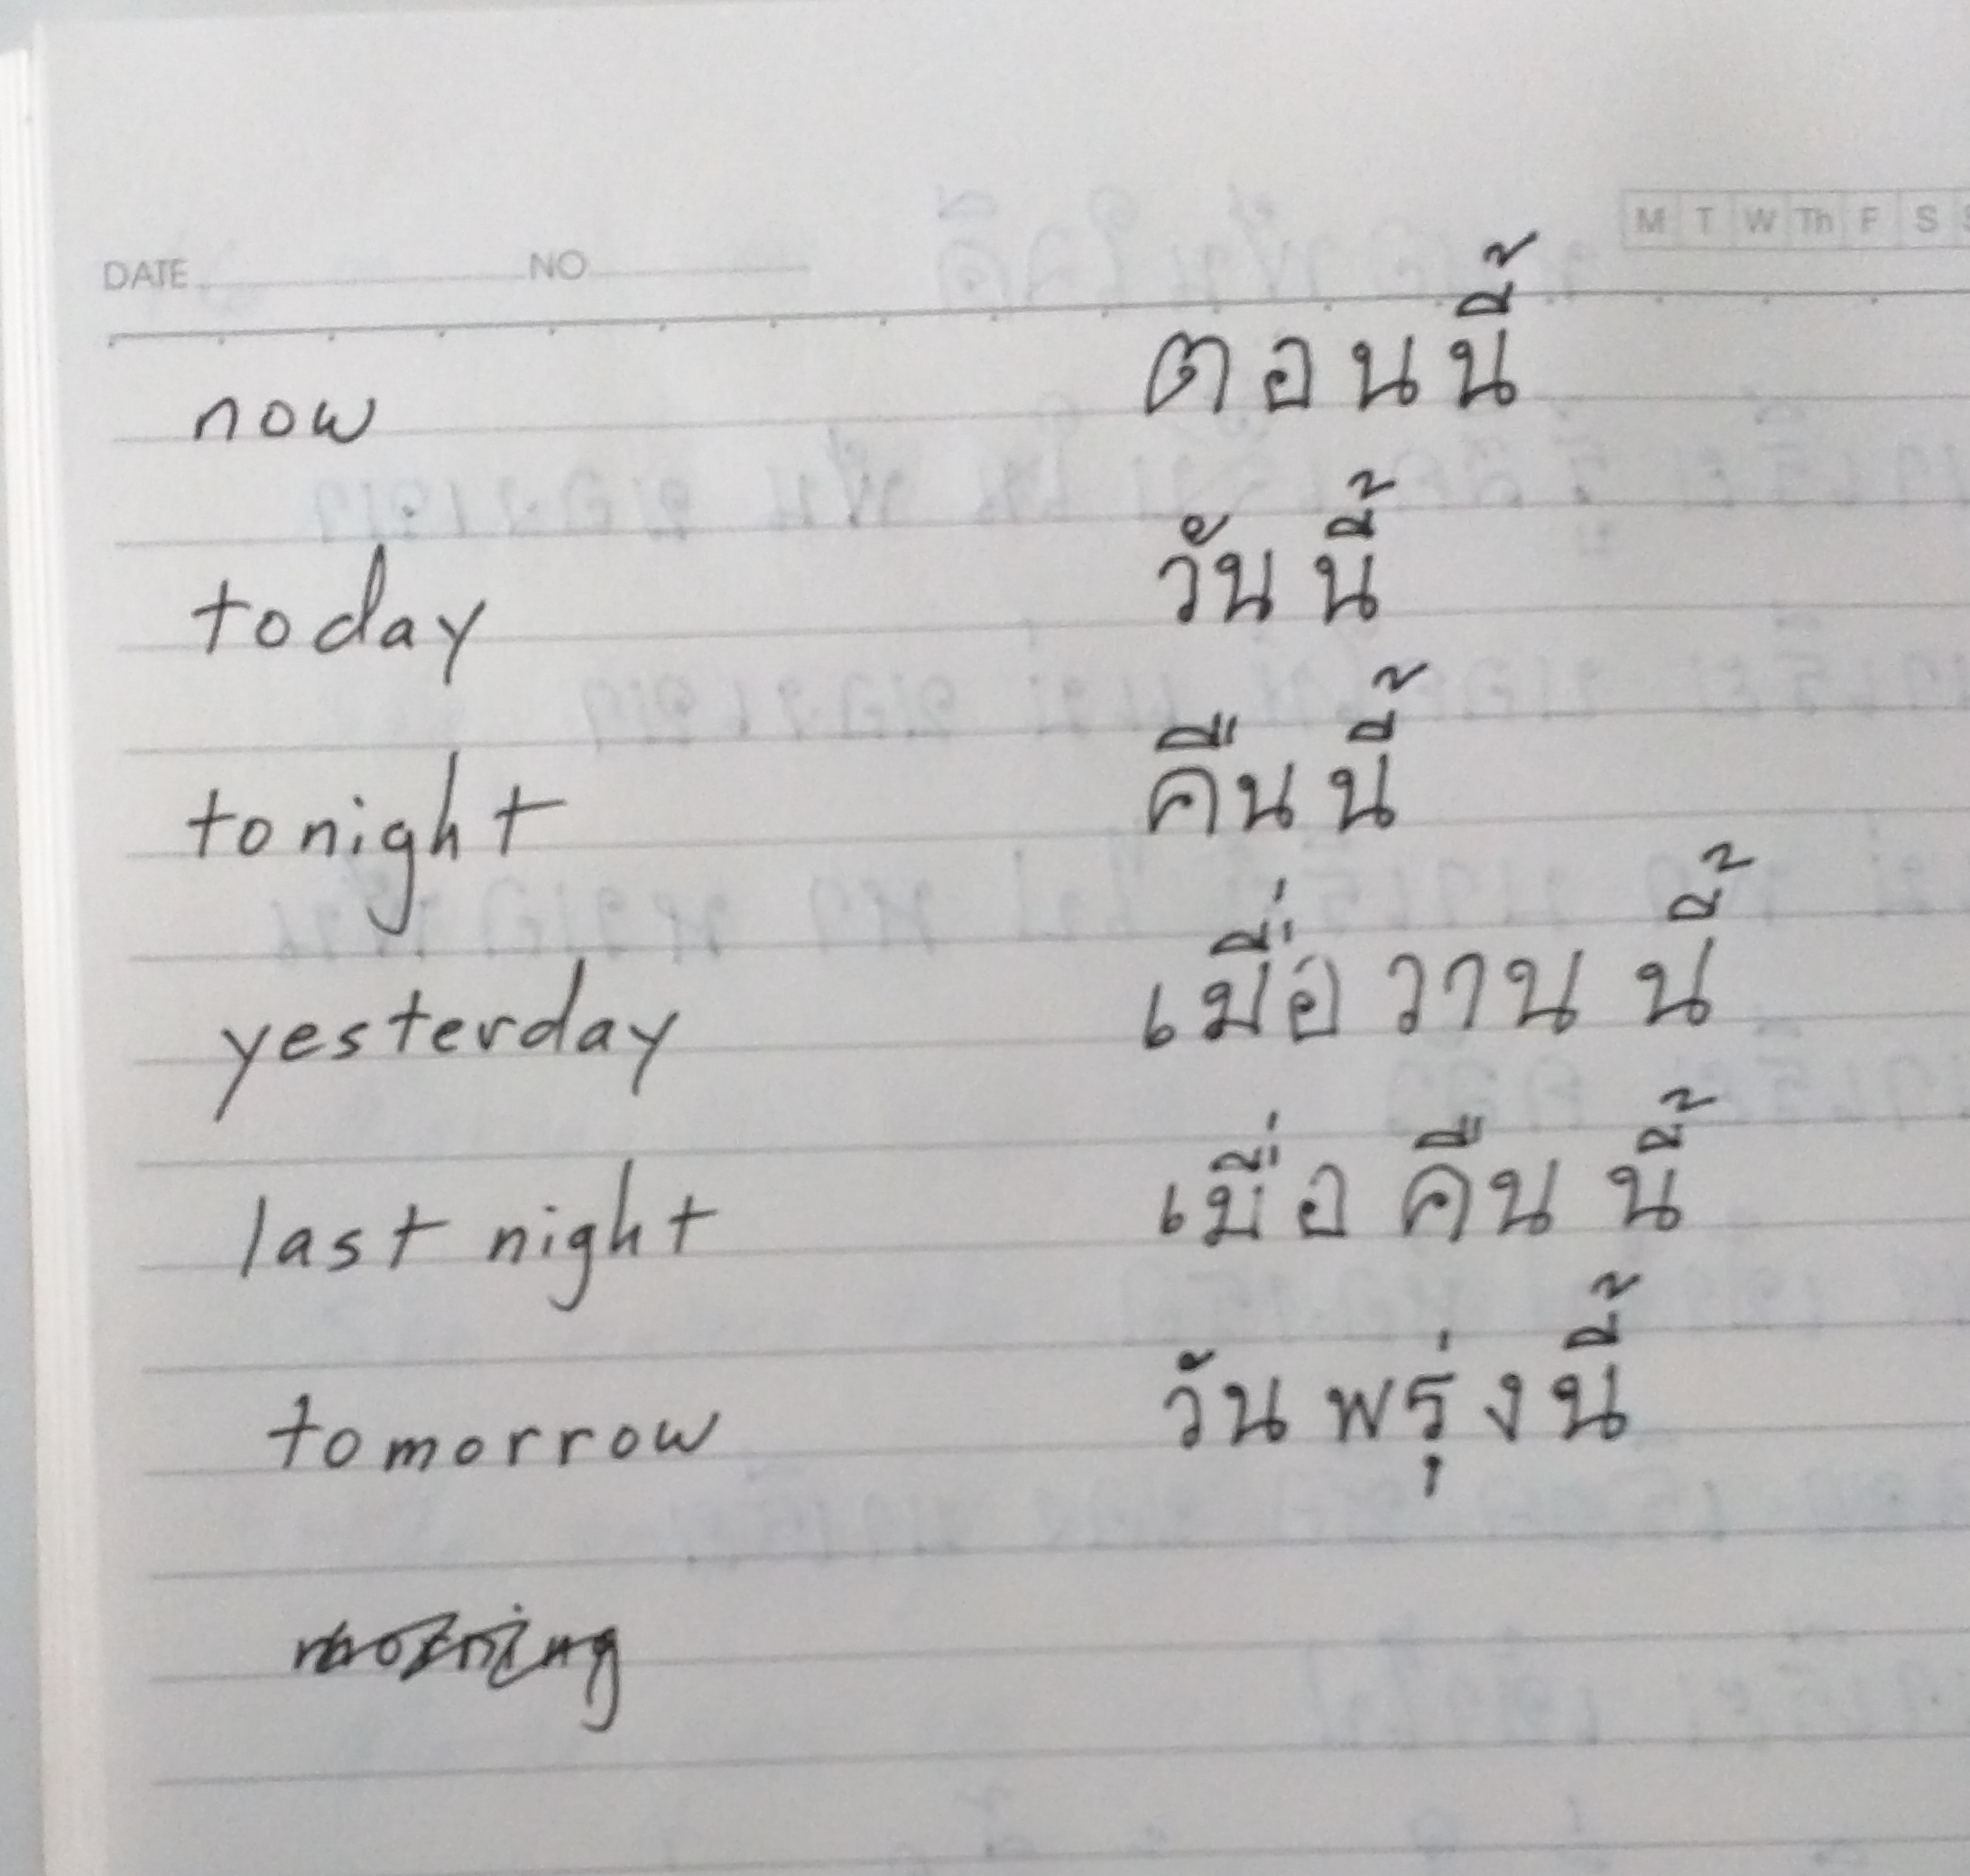 DATE NO M T W Th F S
now ตอนนี้
today วันนี้
tonight คืนนี้
yesterday เมื่อวานนี้
last night เมื่อคืนนี้
tomorrow วันพรุ่งนี้